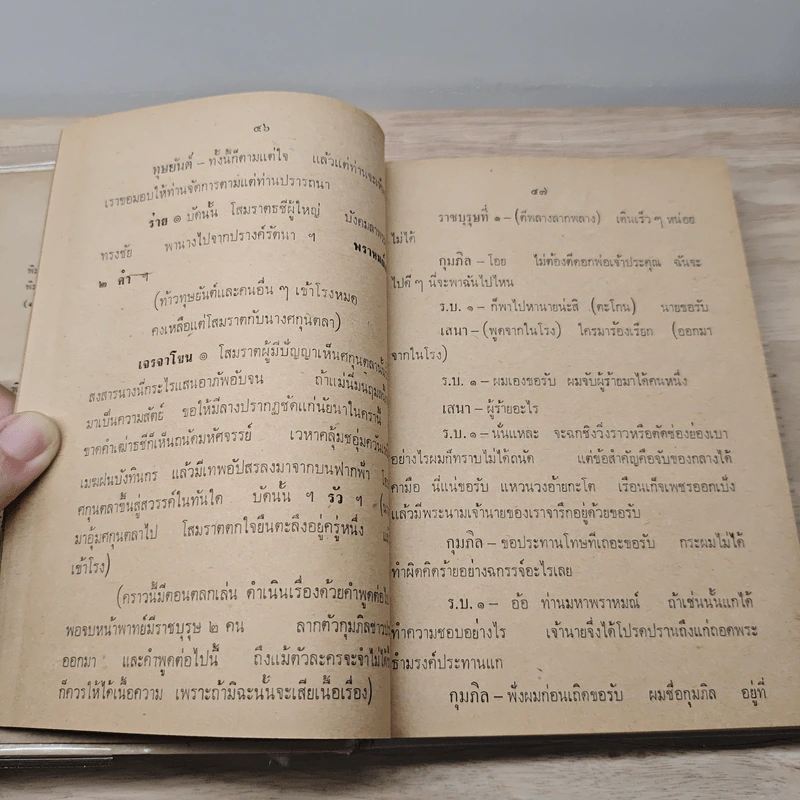 ๔๖
ทุษยันต์ – ทั้งนี้ก็ตามแต่ใจ แล้วแต่ท่านจะ
เราขอมอบให้ท่านจัดการตามแต่ท่านปรารถนา
ร่าย ๑ บัดนั้น โสมราตธชีผู้ใหญ่ บังคมลา
ทรงชัย พานางไปจากปรางค์รัตนา ฯ
๒ คำ ฯ
(ท้าวทุษยันต์และคนอื่น ๆ เข้าโรงหมด
คงเหลือแต่โสมราตกับนางศกุนตลา)
เจรจาโขน ๑ โสมราตผู้มีปัญญาเห็นศกุนตลา
สงสารนางนี่กระไรแสนอาภัพอับจน ถ้าแม่นี่
มาเป็นความสัตย์ ขอให้มีลางปรากฏชัดแก่นัยนาในครานี้
ขาดคำเฒ่าธชีก็เห็นถนัดมหัศจรรย์ เวหาคลุ้มชอุ่มควัน
เมฆฝนบังทินกร แล้วมีเทพอัปสรลงมาจากบนฟากฟ้า
ศกุนตลาขึ้นสู่สวรรค์ในทันใด บัดนั้น ฯ รัว ฯ
มาอุ้มศกุนตลาไป โสมราตตกใจยืนตะลึงอยู่ครู่หนึ่ง
เข้าโรง)
(คราวนี้มีตอนตลกเล่น ดำเนินเรื่องด้วยคำพูดต่อไป
พอจบหน้าพาทย์มีราชบุรุษ ๒ คน ลากตัวกุมภิล
ออกมา และคำพูดต่อไปนี้ ถึงแม้ตัวละครจะจำไม่ได้
ก็ควรให้ได้เนื้อความ เพราะถ้ามิฉะนั้นจะเสียเนื้อเรื่อง)
๔๗
ราชบุรุษที่ ๑ – (ตีพลางลากพลาง) เดินเร็ว ๆ หน่อย
ไม่ได้
กุมภิล – โอย ไม่ต้องตีดอกพ่อเจ้าประคุณ ฉันจะ
ไปดี ๆ นี่จะพาฉันไปไหน
ร.บ. ๑ – ก็พาไปหานายน่ะสิ (ตะโกน) นายขอรับ
เสนา – (พูดจากในโรง) ใครมาร้องเรียก (ออกมา
จากในโรง)
ร.บ. ๑ – ผมเองขอรับ ผมจับผู้ร้ายมาได้คนหนึ่ง
เสนา – ผู้ร้ายอะไร
ร.บ. ๑ – นั่นแหละ จะฉกชิงวิ่งราวหรือตัดช่องย่องเบา
อย่างไรผมก็ทราบไม่ได้ถนัด แต่ข้อสำคัญคือจับของกลางได้
คามือ นี่แน่ขอรับ แหวนวงอ้ายกะโต เรือนเก็จเพชรออกเบ้ง
แล้วมีพระนามเจ้านายของเราจารึกอยู่ด้วยขอรับ
กุมภิล – ขอประทานโทษทีเถอะขอรับ กระผมไม่ได้
ทำผิดคิดร้ายอย่างฉกรรจ์อะไรเลย
ร.บ. ๑ – อ้อ ท่านมหาพราหมณ์ ถ้าเช่นนั้นแกได้
ทำความชอบอย่างไร เจ้านายจึ่งได้โปรดปรานถึงแก่ถอดพระ
ธำมรงค์ประทานแก
กุมภิล – ฟังผมก่อนเถิดขอรับ ผมชื่อกุมภิล อยู่ที่